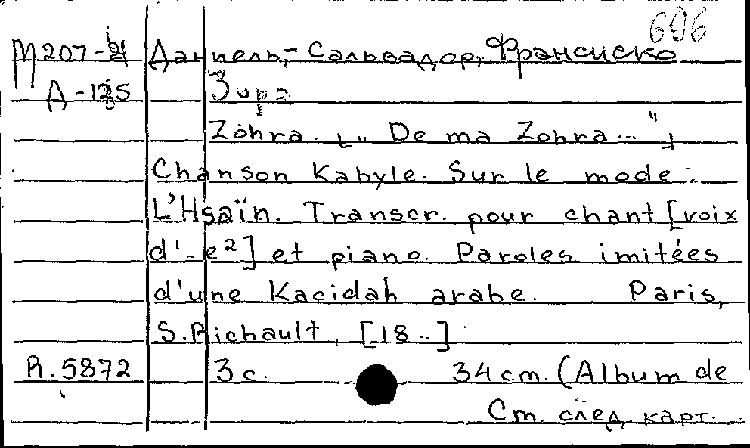 606
М207-21 Даниель-Сальвадор, Франсиско
Д-125 Зора
Zohra. [„De ma Zohra..."]
Chanson Kabyle. Sur le mode:
L'Hsaïn. Transcr. pour chant [voix
d'-e²] et piano. Paroles imitées
d'une Kacidah arabe. Paris,
S. Richault, [18..]
R.5872 3 c. 34 cm. (Album de
См. след. карт.